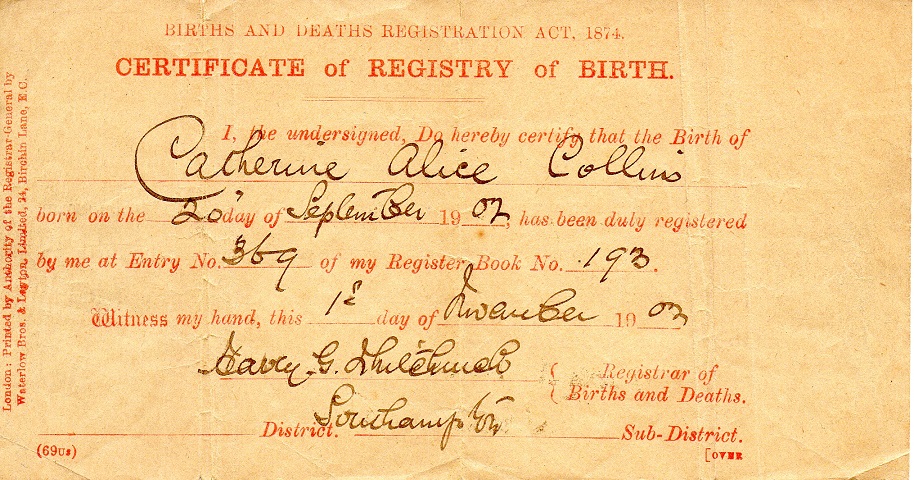 BIRTHS AND DEATHS REGISTRATION ACT, 1874.
CERTIFICATE of REGISTRY of BIRTH.
I, the undersigned, Do hereby certify that the Birth of
Catherine Alice Collins
born on the 20th day of September 1902, has been duly registered
by me at Entry No. 369 of my Register Book No. 193.
Witness my hand, this 1st day of November 1902
Harry G. Registrar of
Births and Deaths.
Southampton
District. Sub-District.
(69us) [OVER
London: Printed by Authority of the Registrar-General by
Waterlow Bros. & Layton, Limited, 24, Birchin Lane, E.C.